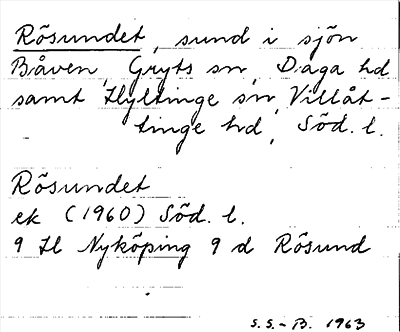 Rösundet, sund i sjön
Båven, Gryts sn, Daga hd
samt Hyltinge sn, Villåt-
tinge hd, Söd. l.
Rösundet
ek (1960) Söd. l.
9 H Nyköping 9 d Rösund
S.S.-B. 1963